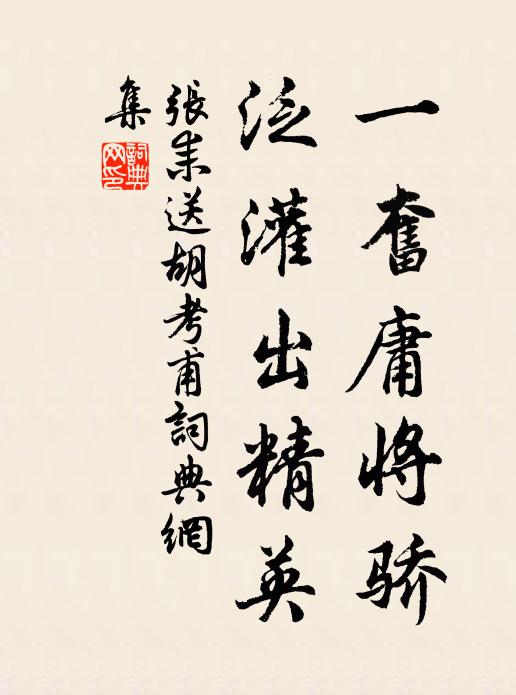 一奮庸將骄
泛灌出精英
張耒送胡考甫詞典網
集
詞典網印